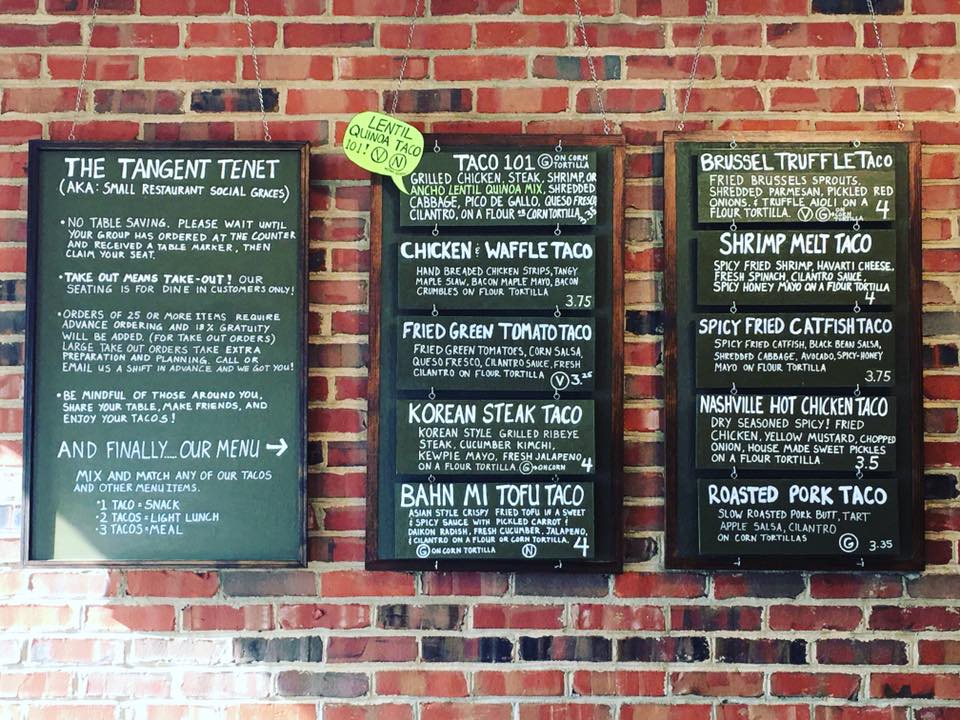 THE TANGENT TENET
(AKA: SMALL RESTAURANT SOCIAL GRACES)
• NO TABLE SAVING. PLEASE WAIT UNTIL
YOUR GROUP HAS ORDERED AT THE COUNTER
AND RECEIVED A TABLE MARKER, THEN
CLAIM YOUR SEAT.
• TAKE OUT MEANS TAKE-OUT! OUR
SEATING IS FOR DINE IN CUSTOMERS ONLY!
• ORDERS OF 25 OR MORE ITEMS REQUIRE
ADVANCE ORDERING AND 18% GRATUITY
WILL BE ADDED. (FOR TAKE OUT ORDERS)
LARGE TAKE OUT ORDERS TAKE EXTRA
PREPARATION AND PLANNING. CALL OR
EMAIL US A SHIFT IN ADVANCE AND WE GOT YOU!
• BE MINDFUL OF THOSE AROUND YOU,
SHARE YOUR TABLE, MAKE FRIENDS, AND
ENJOY YOUR TACOS!
AND FINALLY.... OUR MENU →
MIX AND MATCH ANY OF OUR TACOS
AND OTHER MENU ITEMS.
• 1 TACO = SNACK
• 2 TACOS = LIGHT LUNCH
• 3 TACOS = MEAL
LENTIL
QUINOA TACO
101! V N
TACO 101 G ON CORN TORTILLA
GRILLED CHICKEN, STEAK, SHRIMP, OR
ANCHO LENTIL QUINOA MIX, SHREDDED
CABBAGE, PICO DE GALLO, QUESO FRESCO,
CILANTRO, ON A FLOUR OR CORN TORTILLA 3.35
CHICKEN & WAFFLE TACO
HAND BREADED CHICKEN STRIPS, TANGY
MAPLE SLAW, BACON MAPLE MAYO, BACON
CRUMBLES ON FLOUR TORTILLA
3.75
FRIED GREEN TOMATO TACO
FRIED GREEN TOMATOES, CORN SALSA,
QUESO FRESCO, CILANTRO SAUCE, FRESH
CILANTRO ON A FLOUR TORTILLA V 3.25
KOREAN STEAK TACO
KOREAN STYLE GRILLED RIBEYE
STEAK, CUCUMBER KIMCHI,
KEWPIE MAYO, FRESH JALAPENO
ON A FLOUR TORTILLA G ON CORN 4
BAHN MI TOFU TACO
ASIAN STYLE CRISPY FRIED TOFU IN A SWEET
& SPICY SAUCE WITH PICKLED CARROT &
DAIKON RADISH, FRESH CUCUMBER, JALAPENO,
& CILANTRO ON A FLOUR OR CORN TORTILLA.
G ON CORN TORTILLA N 4
BRUSSEL TRUFFLE TACO
FRIED BRUSSELS SPROUTS,
SHREDDED PARMESAN, PICKLED RED
ONIONS, & TRUFFLE AIOLI ON A
FLOUR TORTILLA. V G ON CORN TORTILLA 4
SHRIMP MELT TACO
SPICY FRIED SHRIMP, HAVARTI CHEESE,
FRESH SPINACH, CILANTRO SAUCE,
SPICY HONEY MAYO ON A FLOUR TORTILLA
4
SPICY FRIED CATFISH TACO
SPICY FRIED CATFISH, BLACK BEAN SALSA,
SHREDDED CABBAGE, AVOCADO, SPICY-HONEY
MAYO ON FLOUR TORTILLA
3.75
NASHVILLE HOT CHICKEN TACO
DRY SEASONED SPICY! FRIED
CHICKEN, YELLOW MUSTARD, CHOPPED
ONION, HOUSE MADE SWEET PICKLES
ON A FLOUR TORTILLA 3.5
ROASTED PORK TACO
SLOW ROASTED PORK BUTT, TART
APPLE SALSA, CILANTRO
ON CORN TORTILLAS G 3.35